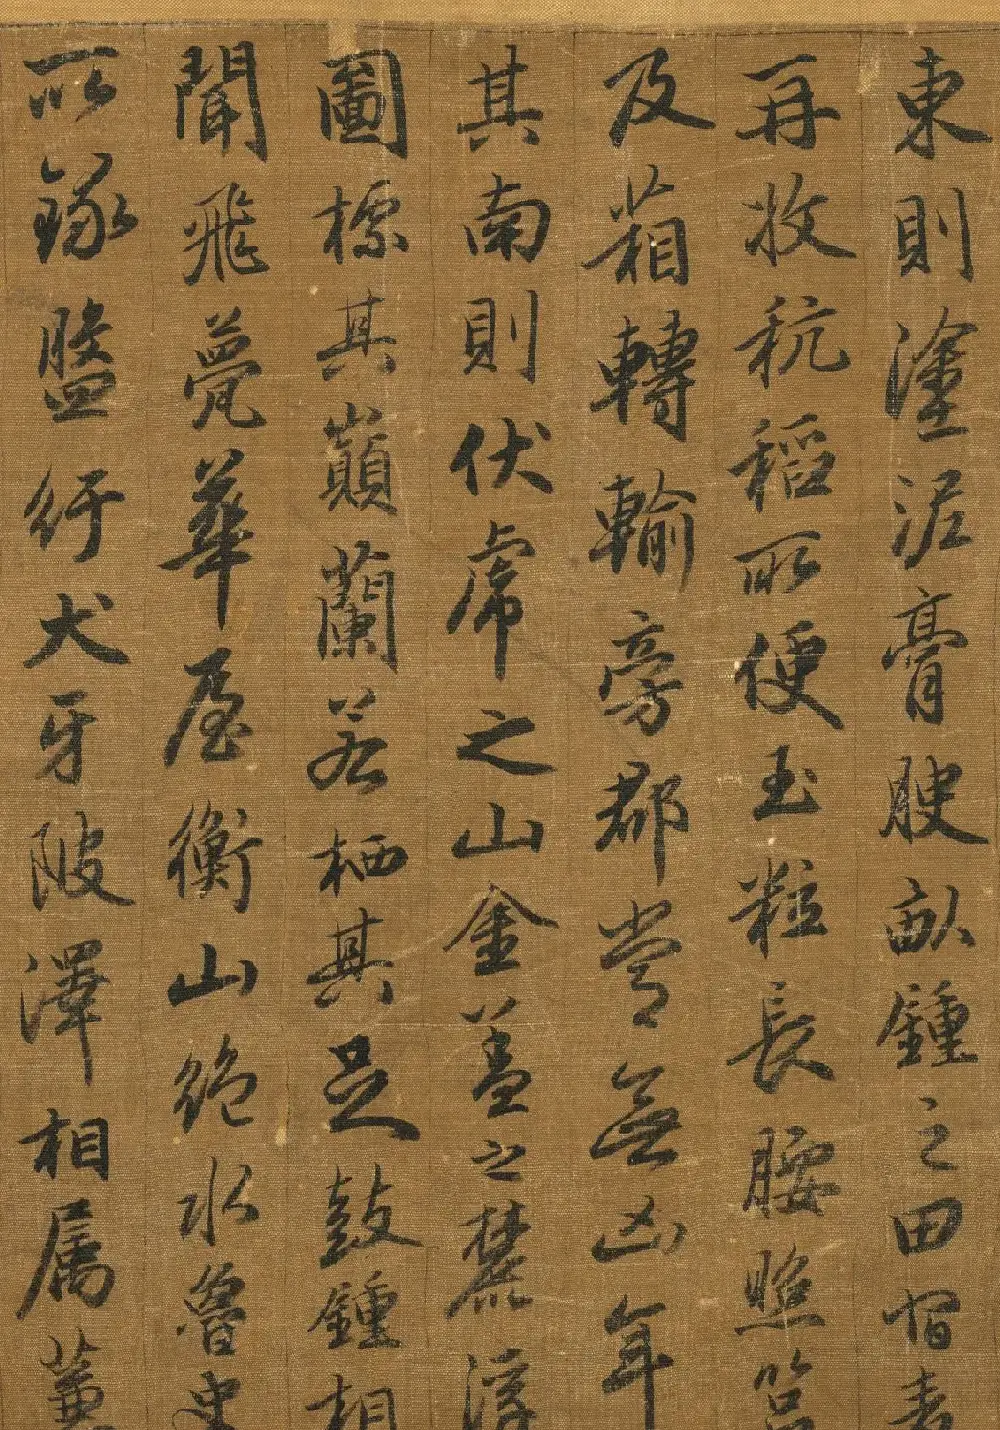 東則塗泥膏腴畝鍾之田宿麦
再收秔稻所便玉粒長腰照筥
及箱轉輸旁郡常無凶年
其南則伏虎之山金盖之麓浮
圖標其巔蘭若栖其足鼓鍾相
聞飛甍華屋衡山絶水魯史
所録盤紆犬牙陂澤相屬蒹